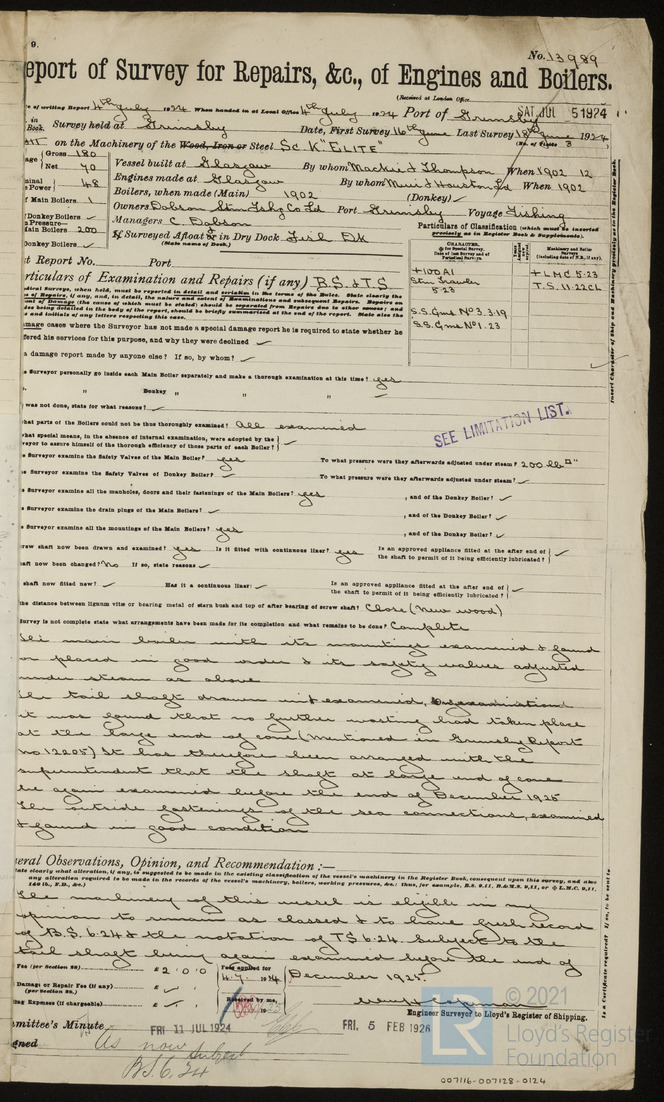 9.
No. 13989
eport of Survey for Repairs, &c., of Engines and Boilers.
(Received at London Office
SAT. JUL 5 1924
e of writing Report 4th July 1924 When handed in at Local Office 4th July 1924 Port of Grimsby
in Book. Survey held at Grimsby Date, First Survey 16th June Last Survey 18th June 1924
(No. of Visits 3
on the Machinery of the Wood, Iron or Steel Sc. K "ELITE"
Gross 180
Net 70
Vessel built at Glasgow By whom Mackie & Thompson When 1902 12
Engines made at Glasgow By whom Muir & Houston Ld When 1902
Power 48
Boilers, when made (Main) 1902 (Donkey) ✓
Main Boilers 1
Owners Dobson Stm Fshg Co Ld Port Grimsby Voyage Fishing
Donkey Boilers ✓
Managers C. Dobson
Main 200
If Surveyed Afloat or in Dry Dock Fish Dk
(State name of Dock.)
Donkey Boilers ✓
Particulars of Classification (which must be inserted
precisely as in Register Book & Supplements).
+100A1
Stm Trawler
5.23
+LMC 5.23
T.S. 11.22CL
S.S. Gms No 3. 3.19
S.S. Gms No 1. 23
t Report No. Port
rticulars of Examination and Repairs (if any) B.S. & T.S.
mage cases where the Surveyor has not made a special damage report he is required to state whether he
fered his services for this purpose, and why they were declined ✓
a damage report made by anyone else? If so, by whom? ✓
e Surveyor personally go inside each Main Boiler separately and make a thorough examination at this time? yes
" Donkey " " " ✓
was not done, state for what reasons? ✓
hat parts of the Boilers could not be thus thoroughly examined? All examined
SEE LIMITATION LIST.
hat special means, in the absence of internal examination, were adopted by the
veyor to assure himself of the thorough efficiency of those parts of each Boiler? ✓
e Surveyor examine the Safety Valves of the Main Boiler? yes To what pressure were they afterwards adjusted under steam? 200 lb □"
e Surveyor examine the Safety Valves of Donkey Boiler? ✓ To what pressure were they afterwards adjusted under steam? ✓
e Surveyor examine all the manholes, doors and their fastenings of the Main Boilers? yes, and of the Donkey Boiler? ✓
e Surveyor examine the drain plugs of the Main Boiler? ✓, and of the Donkey Boiler? ✓
e Surveyor examine all the mountings of the Main Boilers? yes, and of the Donkey Boiler? ✓
rew shaft now been drawn and examined? yes Is it fitted with continuous liner? yes Is an approved appliance fitted at the after end of
the shaft to permit of it being efficiently lubricated? ✓
aft now been changed? No If so, state reasons ✓
shaft now fitted new? ✓ Has it a continuous liner? ✓ Is an approved appliance fitted at the after end of
the shaft to permit of it being efficiently lubricated? ✓
the distance between lignum vitæ or bearing metal of stern bush and top of after bearing of screw shaft? Close (New wood)
urvey is not complete state what arrangements have been made for its completion and what remains to be done? Complete
The main boiler with its mountings examined & found
or placed in good order & its safety valves adjusted
under steam as above
The tail shaft drawn in & examined,
it was found that no further wasting had taken place
at the large end of cone (Mentioned in Grimsby Report
No 12205) It has therefore been arranged with the
superintendent that the shaft at large end of cone
be again examined before the end of December 1925
The outside fastenings of the sea connections, examined
& found in good condition
neral Observations, Opinion, and Recommendation :—
tate clearly what alteration, if any, is suggested to be made in the existing classification of the vessel's machinery in the Register Book, consequent upon this survey, and also
any alteration required to be made in the records of the vessel's machinery, boilers, working pressures, &c.; thus, for example, B.S. 9,11, B.&M.S. 9,11, or ✠ L.M.C. 9,11,
140 lb., F.D., &c.)
The machinery of this vessel is eligible in my
opinion to remain as classed & to have fresh record
of B.S. 6.24 & the notation of TS 6.24 Subject to the
tail shaft being again examined before the end of
December 1925
Fee (per Section 29) £2:0:0 Fees applied for
4.7.1924
Damage or Repair Fee (if any) £ ✓
(per Section 28.)
ing Expenses (if chargeable) £ ✓
Received by me,
Engineer Surveyor to Lloyd's Register of Shipping.
mmittee's Minute FRI 11 JUL 1924 FRI. 5 FEB 1926
gned As now
Subject
B.S. 6.24
© 2021
LR Lloyd's Register
Foundation
007116-007128-0124